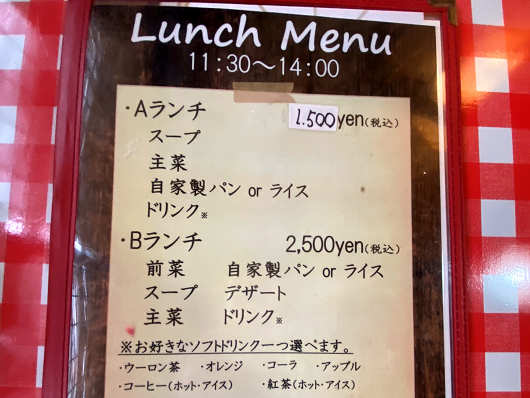 Lunch Menu
11:30～14:00
・Aランチ 1.500yen(税込)
スープ
主菜
自家製パン or ライス
ドリンク※
・Bランチ 2,500yen(税込)
前菜 自家製パン or ライス
スープ デザート
主菜 ドリンク※
※お好きなソフトドリンク一つ選べます。
・ウーロン茶 ・オレンジ ・コーラ ・アップル
・コーヒー(ホット・アイス) ・紅茶(ホット・アイス)